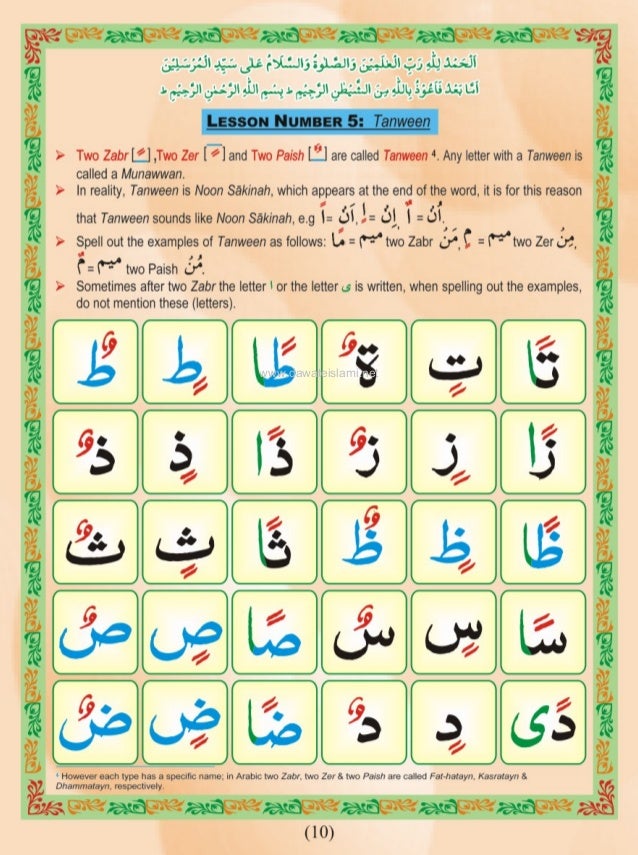 اَلْحَمْدُ لِلّٰهِ رَبِّ الْعٰلَمِيْنَ وَالصَّلٰوةُ وَالسَّلَامُ عَلٰى سَيِّدِ الْمُرْسَلِيْنَ
اَمَّا بَعْدُ فَاَعُوْذُ بِاللّٰهِ مِنَ الشَّيْطٰنِ الرَّجِيْمِ ط بِسْمِ اللّٰهِ الرَّحْمٰنِ الرَّحِيْمِ ط
LESSON NUMBER 5: Tanween
➢ Two Zabr [ ً ] ,Two Zer [ ٍ ] and Two Paish [ ٌ ] are called Tanween ⁴. Any letter with a Tanween is
called a Munawwan.
➢ In reality, Tanween is Noon Sākinah, which appears at the end of the word, it is for this reason
that Tanween sounds like Noon Sākinah, e.g اً= اَنْ, اٍ= اِنْ, اٌ = اُنْ.
➢ Spell out the examples of Tanween as follows: مًا = ميم two Zabr مَنْ, مٍ = ميم two Zer مِنْ,
مٌ = ميم two Paish مُنْ.
➢ Sometimes after two Zabr the letter ا or the letter ى is written, when spelling out the examples,
do not mention these (letters).
تًا تٍ ةٌ طًا طٍ طٌ
زًا زٍ زٌ ذًا ذٍ ذٌ
ظًا ظٍ ظٌ ثًا ثٍ ثٌ
سًا سٍ سٌ صًا صٍ صٌ
دًى دٍ دٌ ضًا ضٍ ضٌ
www.dawateislami.net
⁴ However each type has a specific name; in Arabic two Zabr, two Zer & two Paish are called Fat-hatayn, Kasratayn &
Dhammatayn, respectively.
(10)